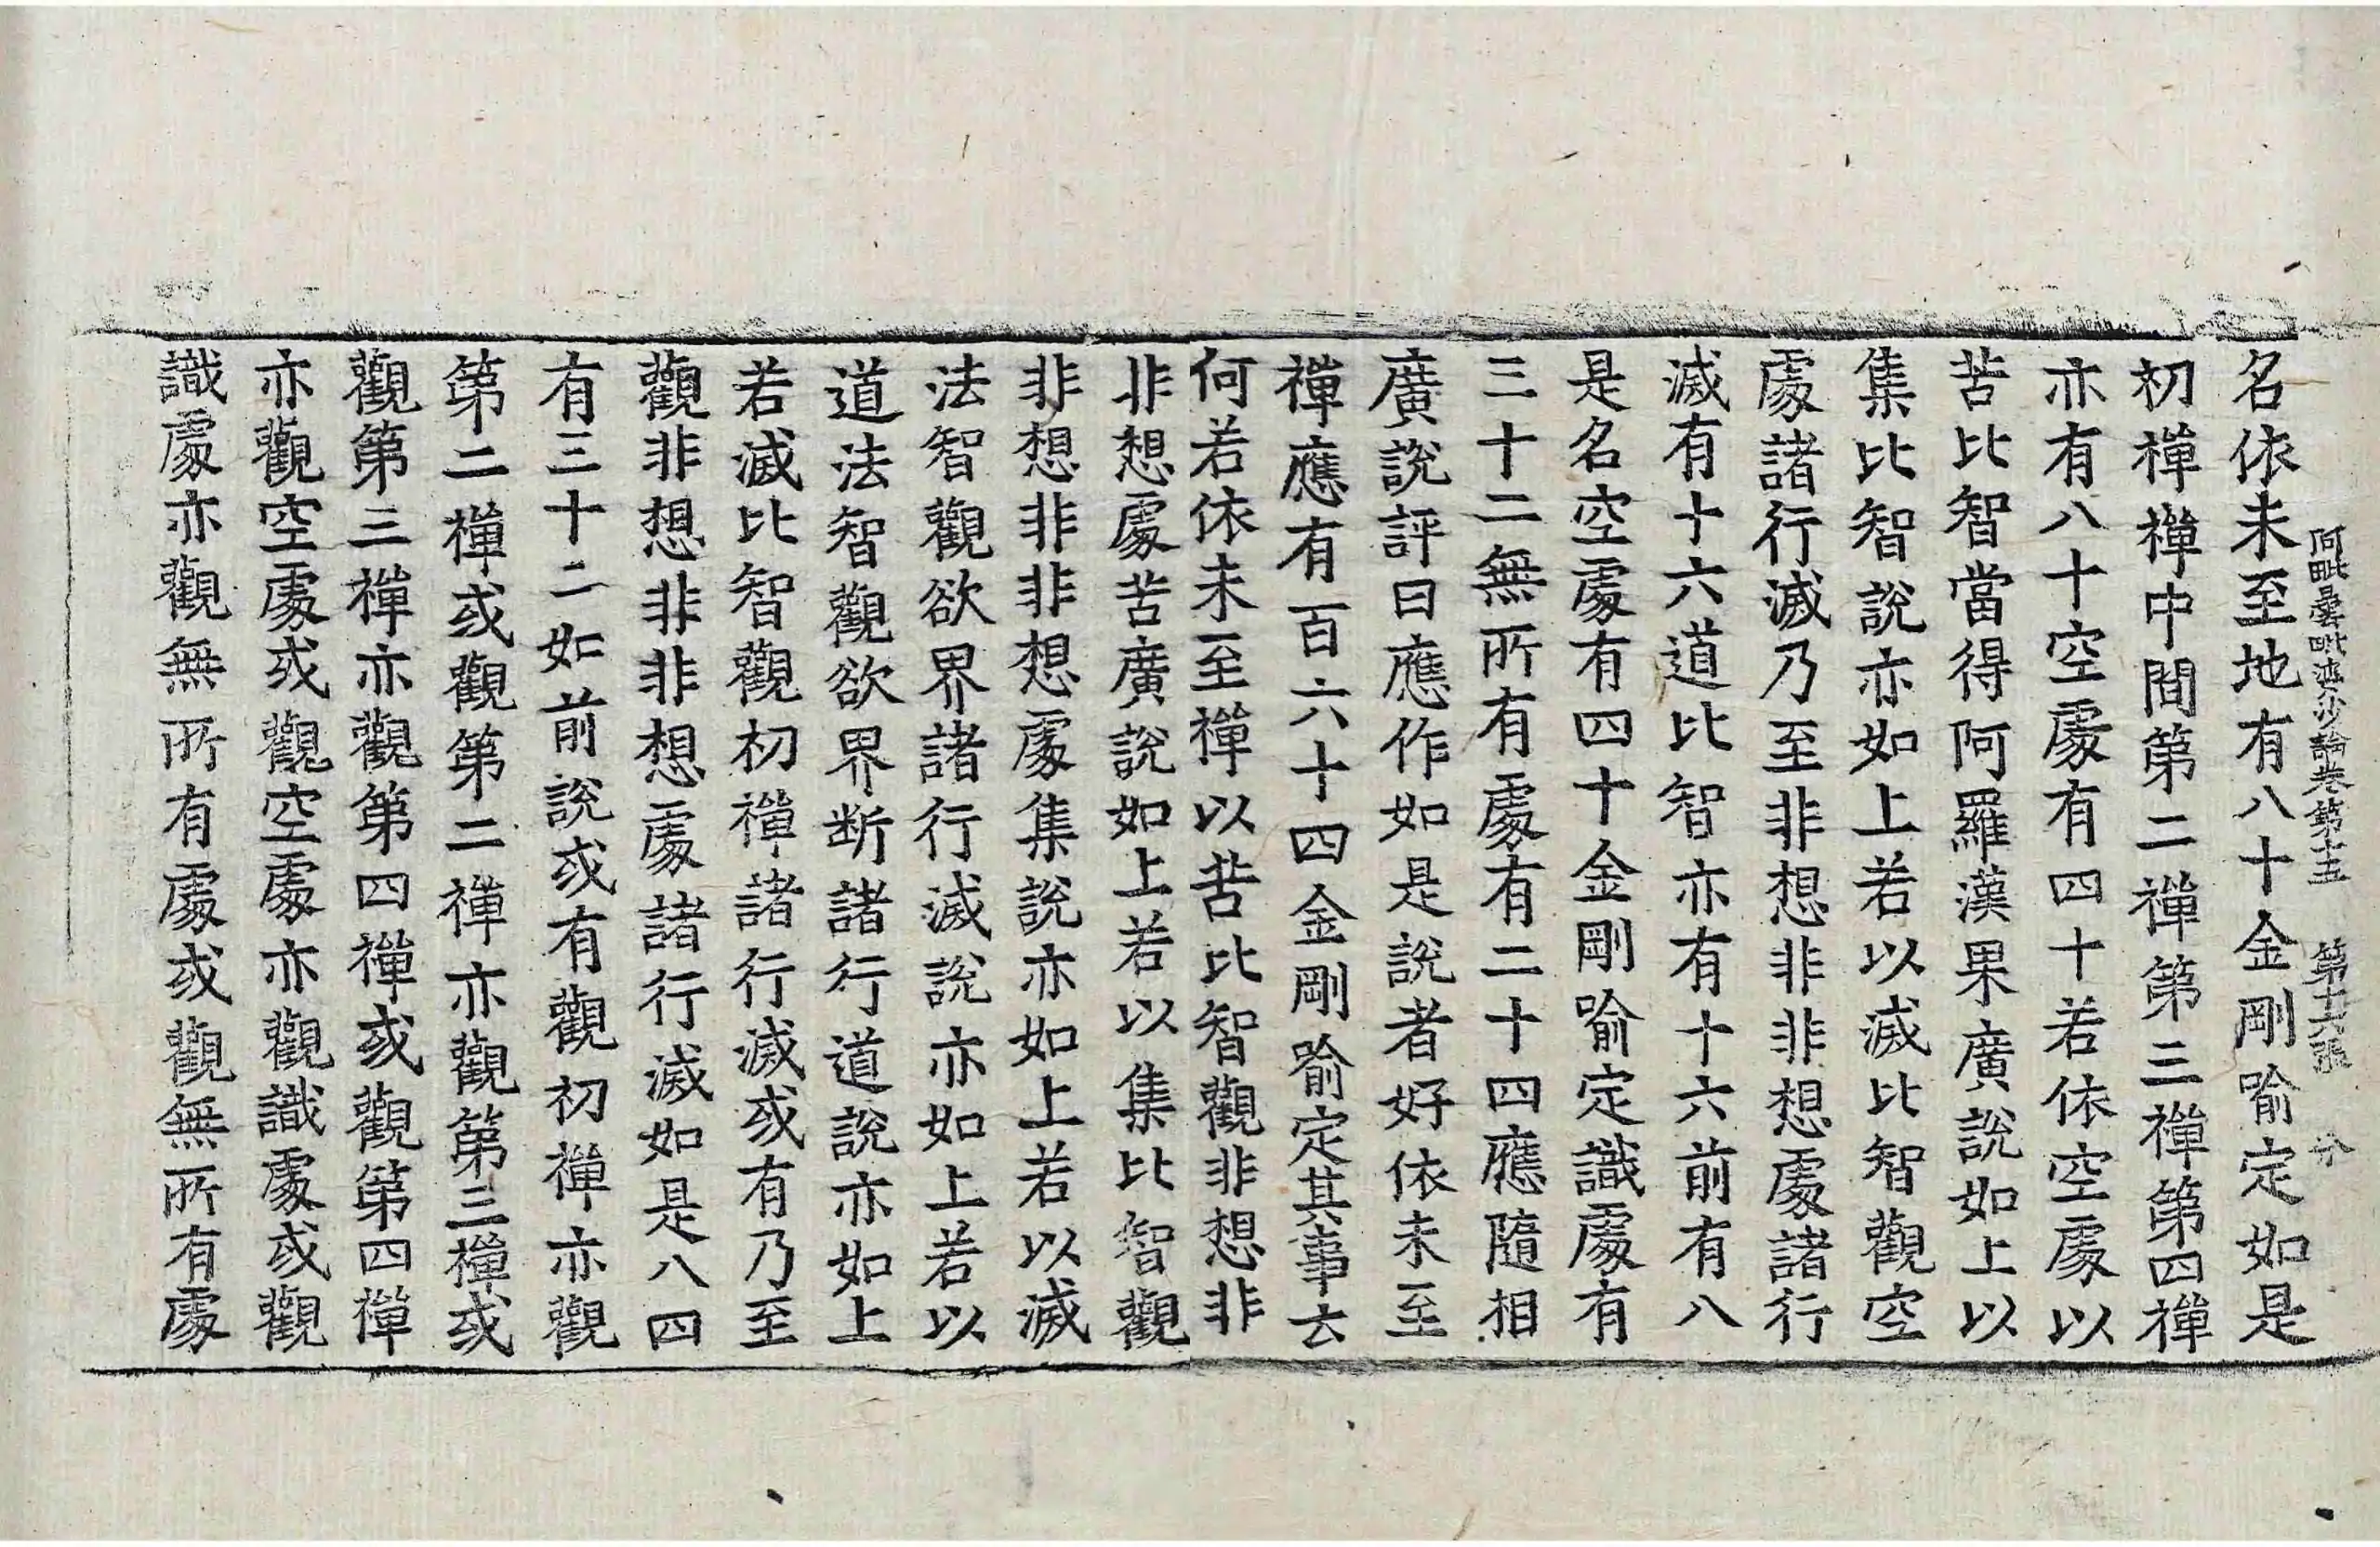 阿毗曇毗婆沙論卷第十五　第十六張　分
名依未至地有八十金剛喻定如是
初禪禪中間第二禪第三禪第四禪
亦有八十空處有四十若依空處以
苦比智當得阿羅漢果廣說如上以
集比智說亦如上若以滅比智觀空
處諸行滅乃至非想非非想處諸行
滅有十六道比智亦有十六前有八
是名空處有四十金剛喻定識處有
三十二無所有處有二十四應隨相
廣說評曰應作如是說者好依未至
禪應有百六十四金剛喻定其事云
何若依未至禪以苦比智觀非想非
非想處苦廣說如上若以集比智觀
非想非非想處集說亦如上若以滅
法智觀欲界諸行滅說亦如上若以
道法智觀欲界断諸行道說亦如上
若滅比智觀初禪諸行滅或有乃至
觀非想非非想處諸行滅如是八四
有三十二如前說或有觀初禪亦觀
第二禪或觀第二禪亦觀第三禪或
觀第三禪亦觀第四禪或觀第四禪
亦觀空處或觀空處亦觀識處或觀
識處亦觀無所有處或觀無所有處